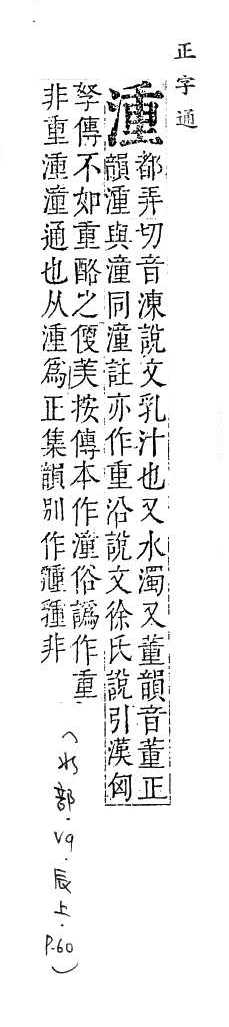 正字通
湩
都弄切音凍說文乳汁也又水濁又董韻音董正
韻湩與潼同潼註亦作重沿說文徐氏說引漢匈
孥傳不如重酪之便美按傳本作潼俗譌作重
非重湩潼通也从湩爲正集韻别作非
(水部.V9.辰上.P.60)